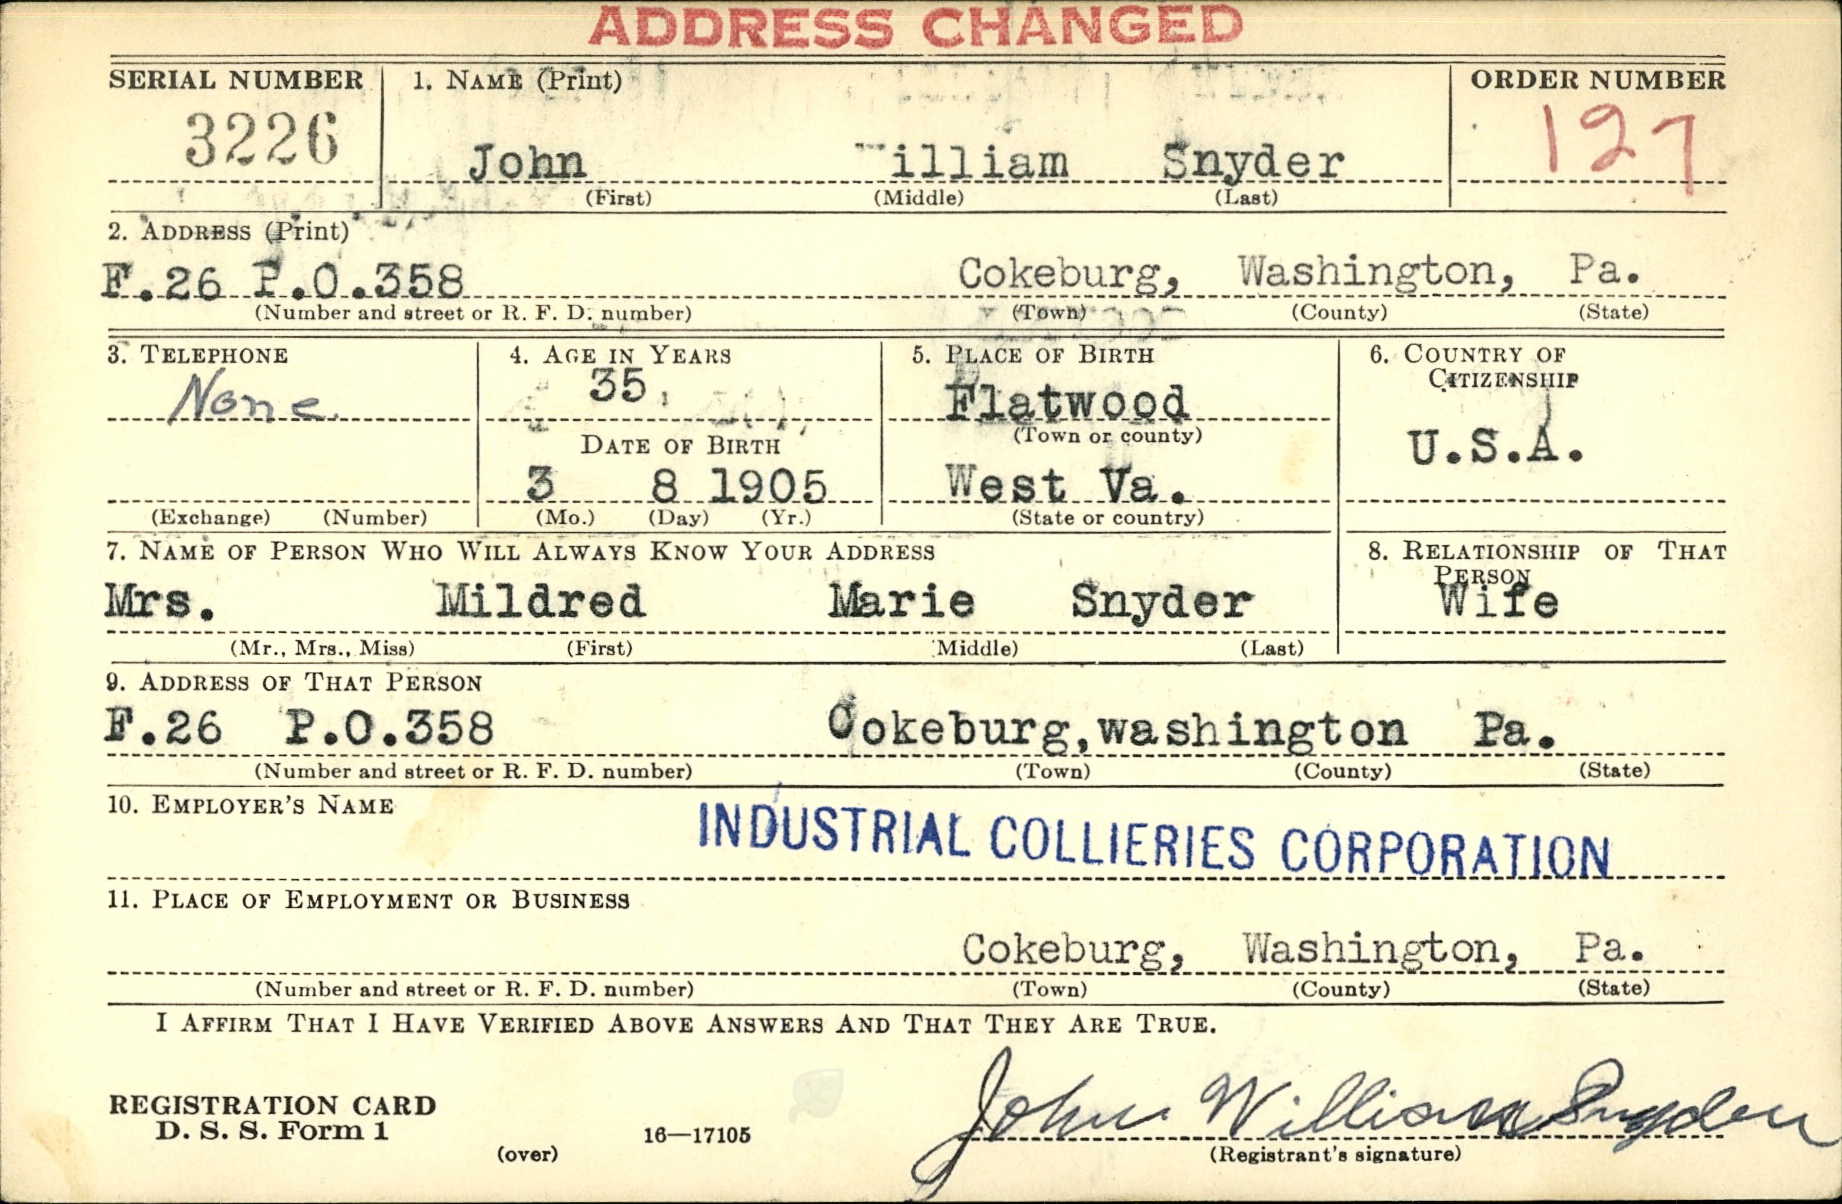 ADDRESS CHANGED
SERIAL NUMBER 1. NAME (Print) ORDER NUMBER
3226 John William Snyder 127
(First) (Middle) (Last)
2. ADDRESS (Print)
F.26 P.O.358 Cokeburg, Washington, Pa.
(Number and street or R. F. D. number) (Town) (County) (State)
3. TELEPHONE 4. AGE IN YEARS 5. PLACE OF BIRTH 6. COUNTRY OF
CITIZENSHIP
None 35 Flatwood
DATE OF BIRTH (Town or county) U.S.A.
3 8 1905 West Va.
(Exchange) (Number) (Mo.) (Day) (Yr.) (State or country)
7. NAME OF PERSON WHO WILL ALWAYS KNOW YOUR ADDRESS 8. RELATIONSHIP OF THAT
PERSON
Mrs. Mildred Marie Snyder Wife
(Mr., Mrs., Miss) (First) Middle) (Last)
9. ADDRESS OF THAT PERSON
F.26 P.O.358 Cokeburg,washington Pa.
(Number and street or R. F. D. number) (Town) (County) (State)
10. EMPLOYER'S NAME
INDUSTRIAL COLLIERIES CORPORATION
11. PLACE OF EMPLOYMENT OR BUSINESS
Cokeburg, Washington, Pa.
(Number and street or R. F. D. number) (Town) (County) (State)
I AFFIRM THAT I HAVE VERIFIED ABOVE ANSWERS AND THAT THEY ARE TRUE.
REGISTRATION CARD
D. S. S. Form 1 16—17105 John William Snyder
(over) (Registrant's signature)